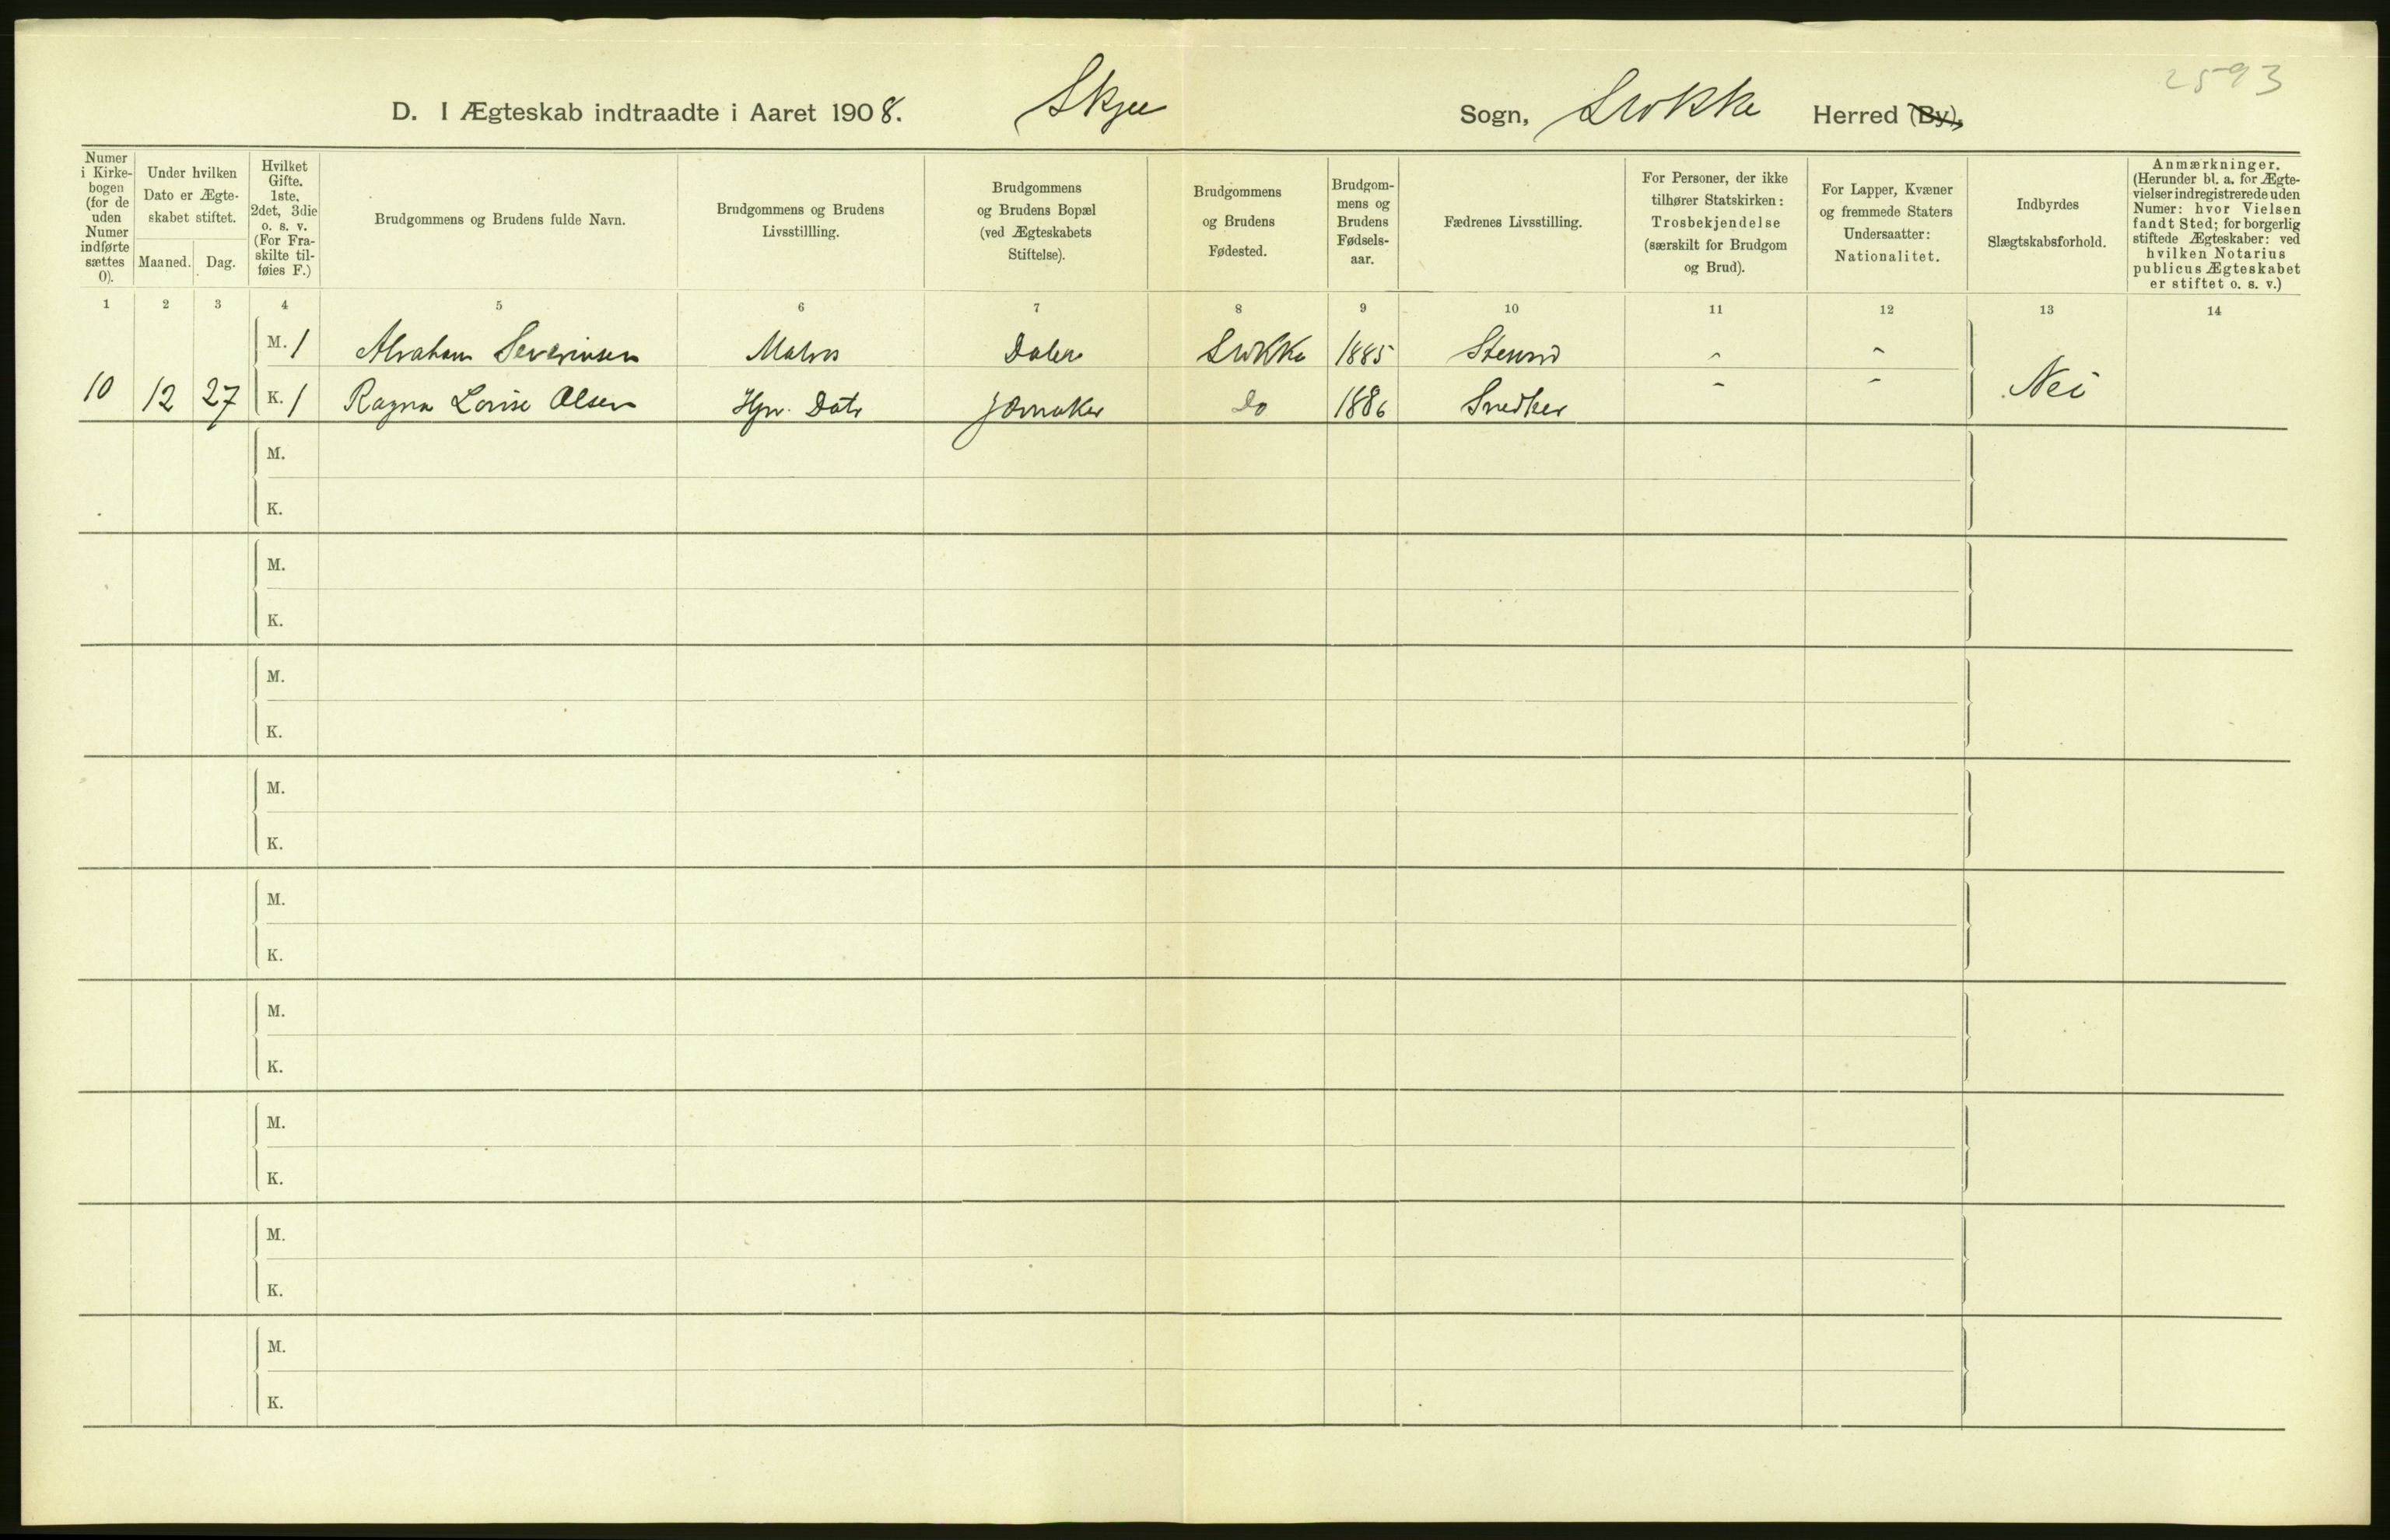 2593
D. I Ægteskab indtraadte i Aaret 1908. Skjee Sogn, Stokke Herred (By),
Numer
i Kirke-
bogen
(for de
uden
Numer
indførte
sættes
0).
Under hvilken
Dato er Ægte-
skabet stiftet.
Maaned. Dag.
Hvilket
Gifte.
1ste,
2det, 3die
o. s. v.
(For Fra-
skilte til-
føies F.)
Brudgommens og Brudens fulde Navn.
Brudgommens og Brudens
Livsstillling.
Brudgommens
og Brudens Bopæl
(ved Ægteskabets
Stiftelse).
Brudgommens
og Brudens
Fødested.
Brudgom-
mens og
Brudens
Fødsels-
aar.
Fædrenes Livsstilling.
For Personer, der ikke
tilhører Statskirken:
Trosbekjendelse
(særskilt for Brudgom
og Brud).
For Lapper, Kvæner
og fremmede Staters
Undersaatter:
Nationalitet.
Indbyrdes
Slægtskabsforhold.
Anmærkninger.
(Herunder bl. a. for Ægte-
vielser indregistrerede uden
Numer: hvor Vielsen
fandt Sted; for borgerlig
stiftede Ægteskaber: ved
hvilken Notarius
publicus Ægteskabet
er stiftet o. s. v.)
1 2 3 4 5 6 7 8 9 10 11 12 13 14
M. 1 Abraham Severinsen Matros Dalen Stokke 1885 Stuert - -
10 12 27 K. 1 Ragna Lovise Olsen Hjv. Datr Do 1886 Snedker - - Nei
M.
K.
M.
K.
M.
K.
M.
K.
M.
K.
M.
K.
M.
K.
M.
K.
M.
K.